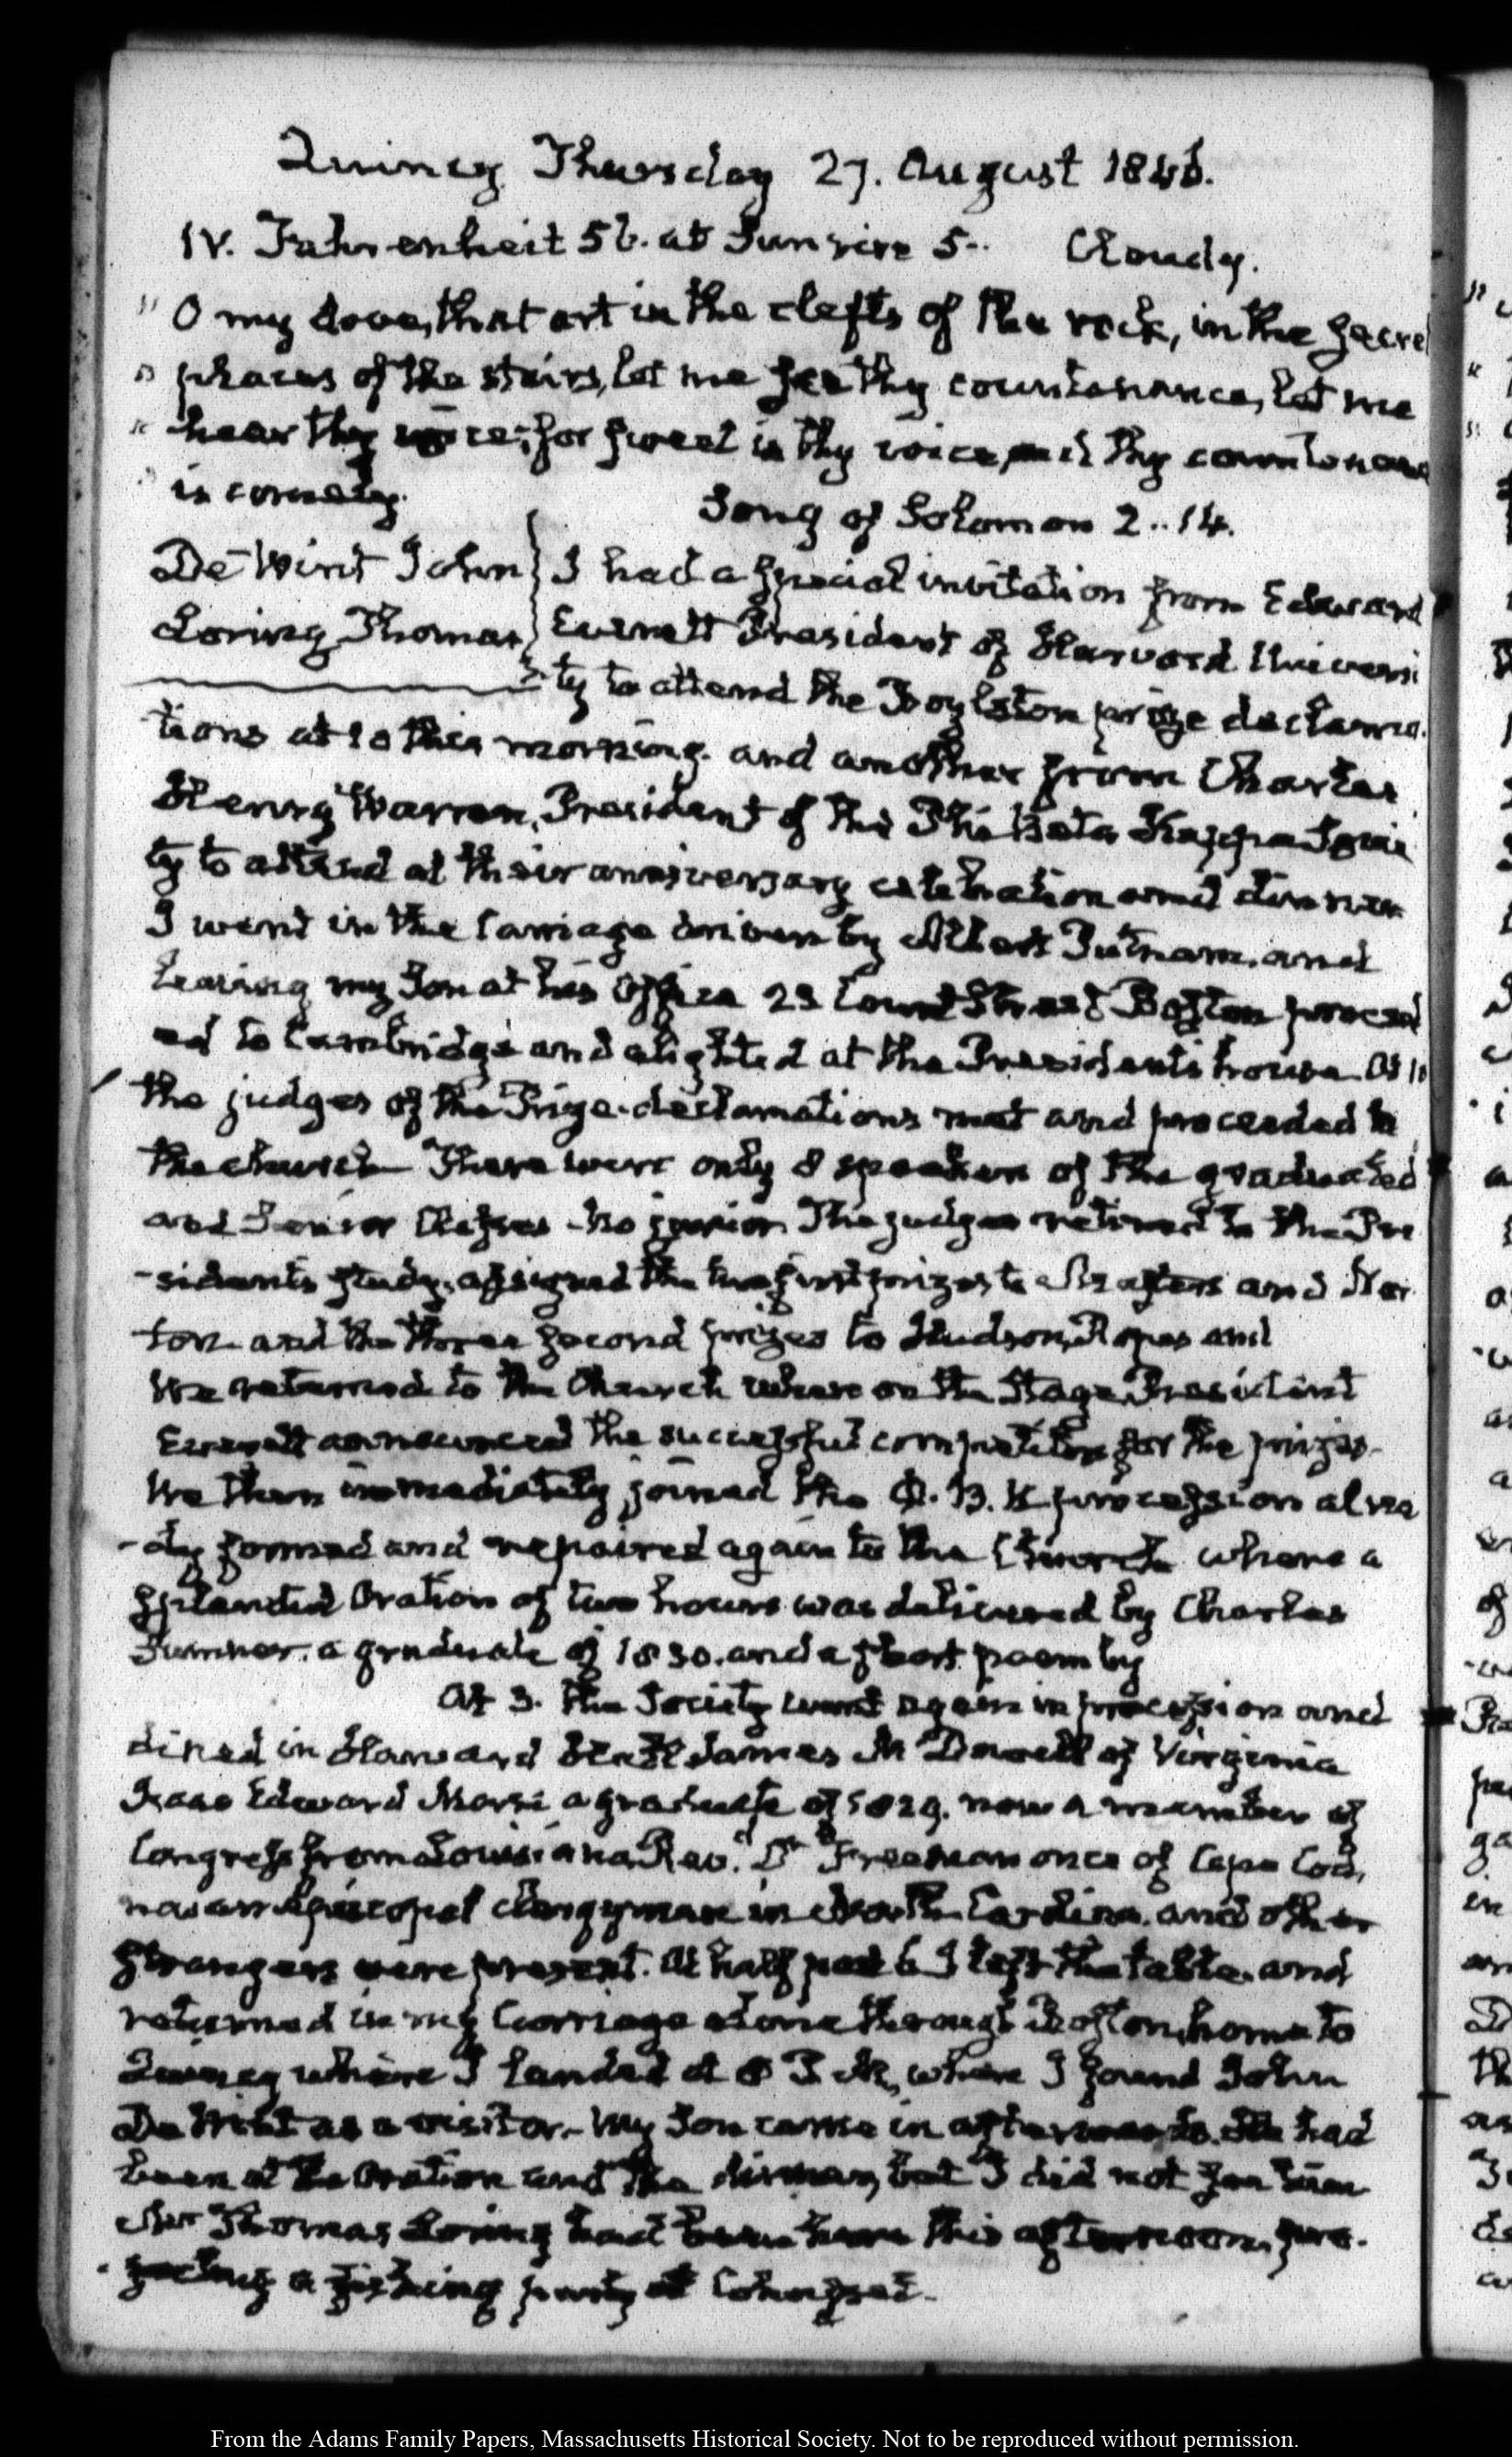 Quincy Thursday 27. August 1846.
IV. Fahrenheit 56. at Sunrise 5.. Cloudy.
" O my dove, that art in the clefts of the rock, in the secre
" places of the stairs, let me see thy countenance, let me
" hear thy voice; for sweet is thy voice, and thy countenance
" is comely. Song of Solomon 2..14.
De Wint John } I had a special invitation from Edward
Loring Thomas } Everett President of Harvard Universi
ty to attend the Boylston prize declama.
tions at 10 this morning. and another from Charles
Henry Warren, President of the Phi Beta Kappa Socie
ty to attend at their anniversary celebration and dinner
I went in the Carriage driven by Albert Putnam. and
leaving my Son at his Office 23 Court Street Boston proceed
ed to Cambridge and alighted at the Presidents house. At 10
the judges of the Prize-declamations met and proceeded to
the church There were only 8 speakers of the graduated
and Senior Classes - no junior. The judges retired to the Pre
-sidents study, assigned the two first prizes to and Nor
ton and the three second prizes to Hudson, Ropes and
We returned to the Church where on the Stage President
Everett announced the successful competitors for the prizes.
We then immediately joined the Φ. B. K procession alrea
-dy formed and repaired again to the Church where a
splendid Oration of two hours was delivered by Charles
Sumner. a graduate of 1830. and a short poem by
At 3. the Society went again in procession and
dined in Harvard Hall James McDowell of Virginia
Isaac Edward Morse a graduate of 1829. now a member of
Congress from Louisiana Rev. Dr Freeman once of Cape Cod,
now an Episcopal clergyman in North Carolina. and other
strangers were present. At half past 6 I left the table. and
returned in my Carriage alone through Boston, home to
Quincy where I landed at 8 P. M, where I found John
De Wint as a visitor.- My Son came in afterwards. He had
been at the Oration and the dinner, but I did not see him
Mr Thomas Loring had been here this afternoon, pro-
-jecting a fishing party at Cohasset.
From the Adams Family Papers, Massachusetts Historical Society. Not to be reproduced without permission.